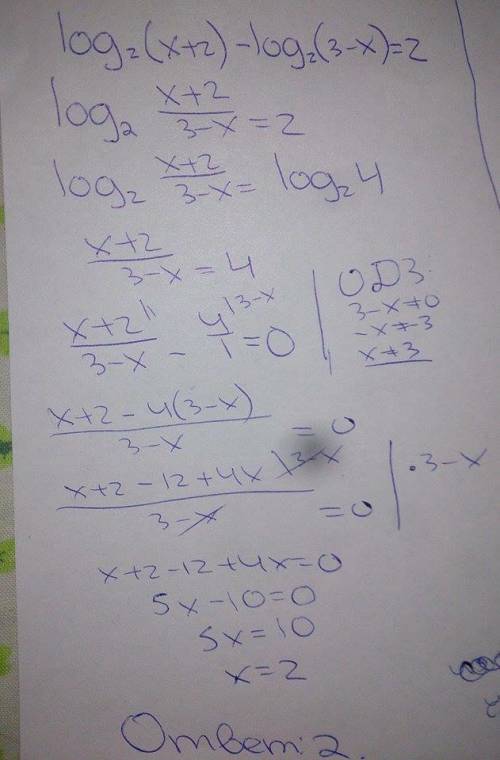 log₂(x+2) - log₂(3-x) = 2
log₂ (x+2)/(3-x) = 2
log₂ (x+2)/(3-x) = log₂4
(x+2)/(3-x) = 4
(x+2)/(3-x) - 4/1 |3-x = 0
ОДЗ
3-x≠0
-x≠-3
x≠3
(x+2-4(3-x))/(3-x) = 0
(x+2-12+4x)/(3-x) = 0 | ·3-x
x+2-12+4x=0
5x-10=0
5x=10
x=2
Ответ: 2.